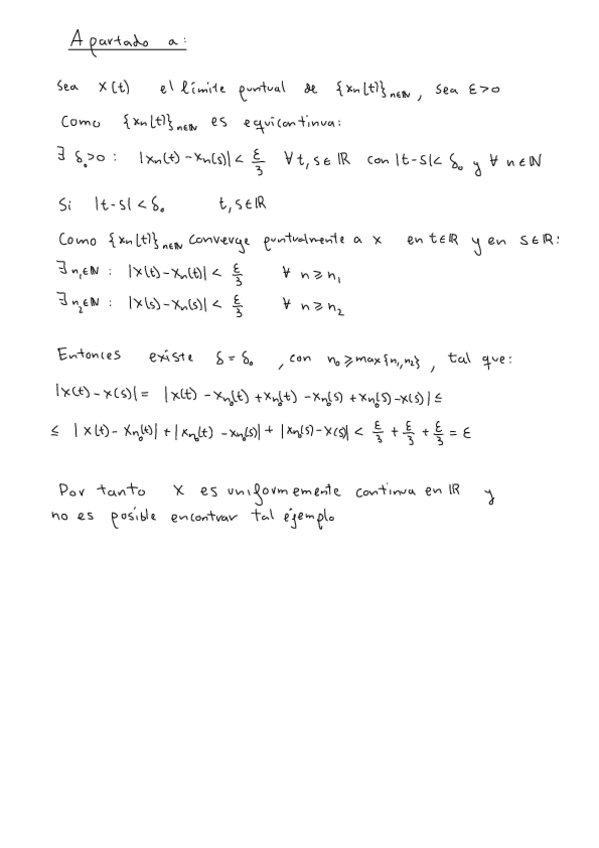 Apartado a:
Sea x(t) el límite puntual de {xn(t)}n∈ℕ, sea ε>0
Como {xn(t)}n∈ℕ es equicontinua:
∃ δ₀>0 : |xn(t)-xn(s)| < ε/3 ∀ t,s∈ℝ con |t-s|< δ₀ y ∀ n∈ℕ
Si |t-s| < δ₀ t,s∈ℝ
Como {xn(t)}n∈ℕ converge puntualmente a x en t∈ℝ y en s∈ℝ:
∃ n₁∈ℕ : |x(t)-xn(t)| < ε/3 ∀ n≥n₁
∃ n₂∈ℕ : |x(s)-xn(s)| < ε/3 ∀ n≥n₂
Entonces existe δ = δ₀ , con n₀ ≥ max{n₁,n₂} , tal que:
|x(t)-x(s)| = |x(t) - xn₀(t) + xn₀(t) - xn₀(s) + xn₀(s) - x(s)| ≤
≤ |x(t) - xn₀(t)| + |xn₀(t) - xn₀(s)| + |xn₀(s) - x(s)| < ε/3 + ε/3 + ε/3 = ε
Por tanto x es uniformemente continua en ℝ y
no es posible encontrar tal ejemplo